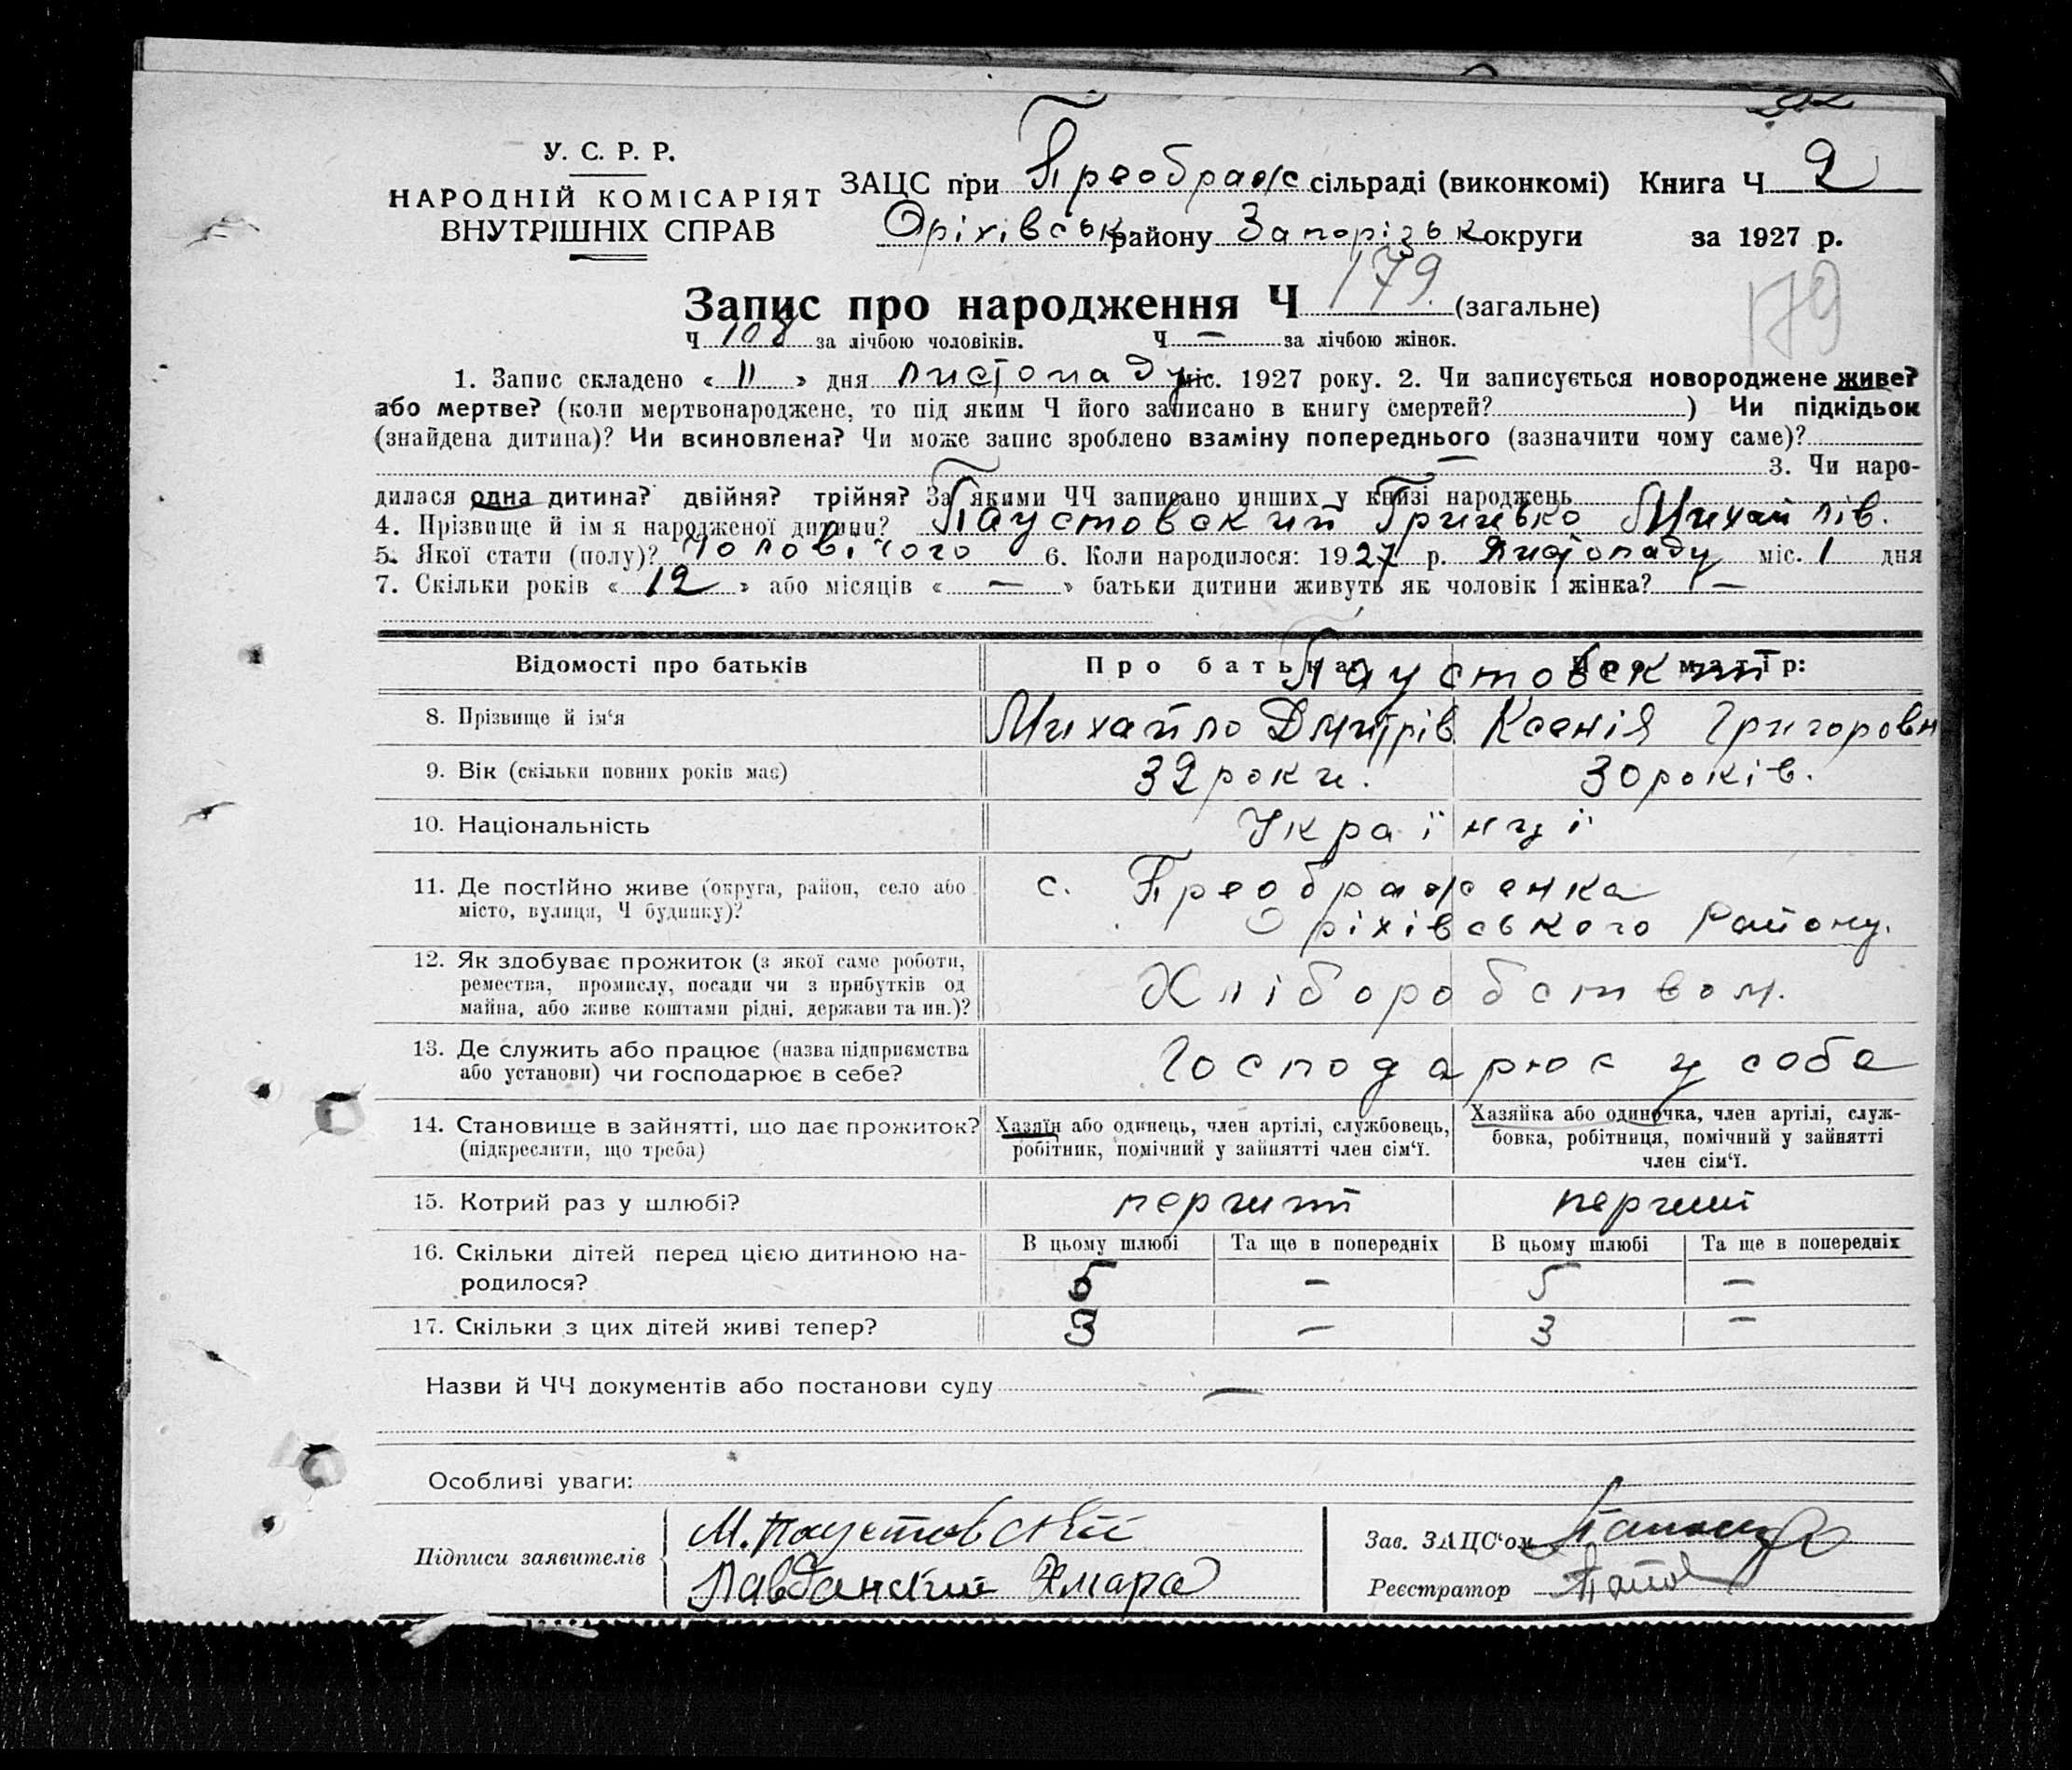 У. С. Р. Р.
НАРОДНІЙ КОМІСАРІЯТ
ВНУТРІШНІХ СПРАВ
ЗАЦС при Преображ сільраді (виконкомі) Книга Ч 2
Оріхівськ району Запорізьк округи за 1927 р.
Запис про народження Ч 179. (загальне)
179
Ч 108 за лічбою чоловіків. Ч — за лічбою жінок.
1. Запис складено « 11 » дня листопаду міс. 1927 року. 2. Чи записується новороджене живе?
або мертве? (коли мертвонароджене, то під яким Ч його записано в книгу смертей? ) Чи підкідьок
(знайдена дитина)? Чи всиновлена? Чи може запис зроблено взаміну попереднього (зазначити чому саме)?
— 3. Чи наро-
дилася одна дитина? двійня? трійня? За якими ЧЧ записано инших у книзі народжень
4. Прізвище й ім я народженої дитини? Паустовский Григівко Михайлів.
5. Якої стати (полу)? чоловічого 6. Коли народилося: 1927 р. Листопаду міс. 1 дня
7. Скільки років « 12 » або місяців « — » батьки дитини живуть як чоловік і жінка? —
Відомості про батьків Про батька: Про матір:
Паустовский
8. Прізвище й ім‘я Михайло Дмитрів. Ксенія Григоровн
9. Вік (скільки повних років має) 32 роки. 30 років.
10. Національність Українці
11. Де постійно живе (округа, район, село або с. Преображенка
місто, вулиця, Ч будинку)? Оріхівського Району.
12. Як здобуває прожиток (з якої саме роботи,
ремества, промислу, посади чи з прибутків од Хліборобством.
майна, або живе коштами рідні, держави та ин.)?
13. Де служить або працює (назва підприємства Господарює у себе
або установи) чи господарює в себе?
14. Становище в зайнятті, що дає прожиток? Хазяїн або одинець, член артілі, службовець, Хазяйка або одиночка, член артілі, служ-
(підкреслити, що треба) робітник, помічний у зайнятті член сім‘ї. бовка, робітниця, помічний у зайнятті
член сім‘ї.
15. Котрий раз у шлюбі? перший перший
16. Скільки дітей перед цією дитиною на- В цьому шлюбі Та ще в попередніх В цьому шлюбі Та ще в попередніх
родилося? 5 — 5 —
17. Скільки з цих дітей живі тепер? 3 — 3 —
Назви й ЧЧ документів або постанови суду —
Особливі уваги:
Підписи заявителів М. Паустовский
Хмара
Зав. ЗАЦС‘ом
Реєстратор